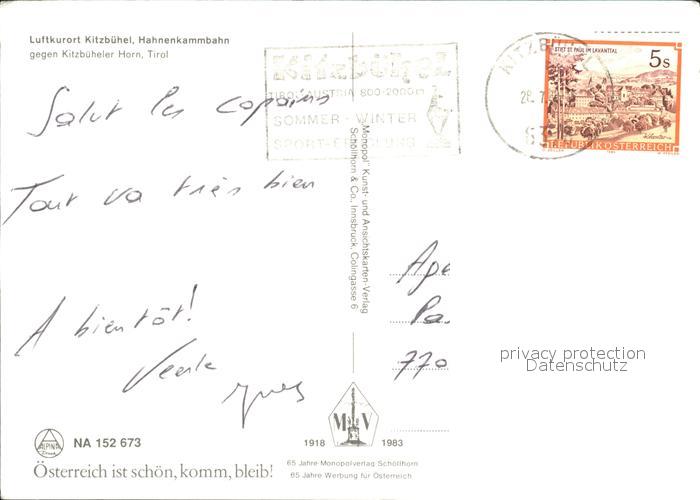 Luftkurort Kitzbühel, Hahnenkammbahn
gegen Kitzbüheler Horn, Tirol
Kitzbühel
TIROL AUSTRIA 800-2000m
SOMMER - WINTER
SPORT-ERHOLUNG
KITZBÜ
28.
STIFT ST. PAUL IM LAVANTTAL
5s
REPUBLIK ÖSTERREICH
Salut les copains
Tout va très bien
A bientôt!
Veerle
Yves
"Monopol" Kunst- und Ansichtskarten-Verlag
Schöllhorn & Co. Innsbruck, Colingasse 6
Age
Pa.
770
privacy protection
Datenschutz
ALPINA
Druck
NA 152 673
Österreich ist schön, komm, bleib!
M V
1918 1983
65 Jahre Monopolverlag Schöllhorn
65 Jahre Werbung für Österreich